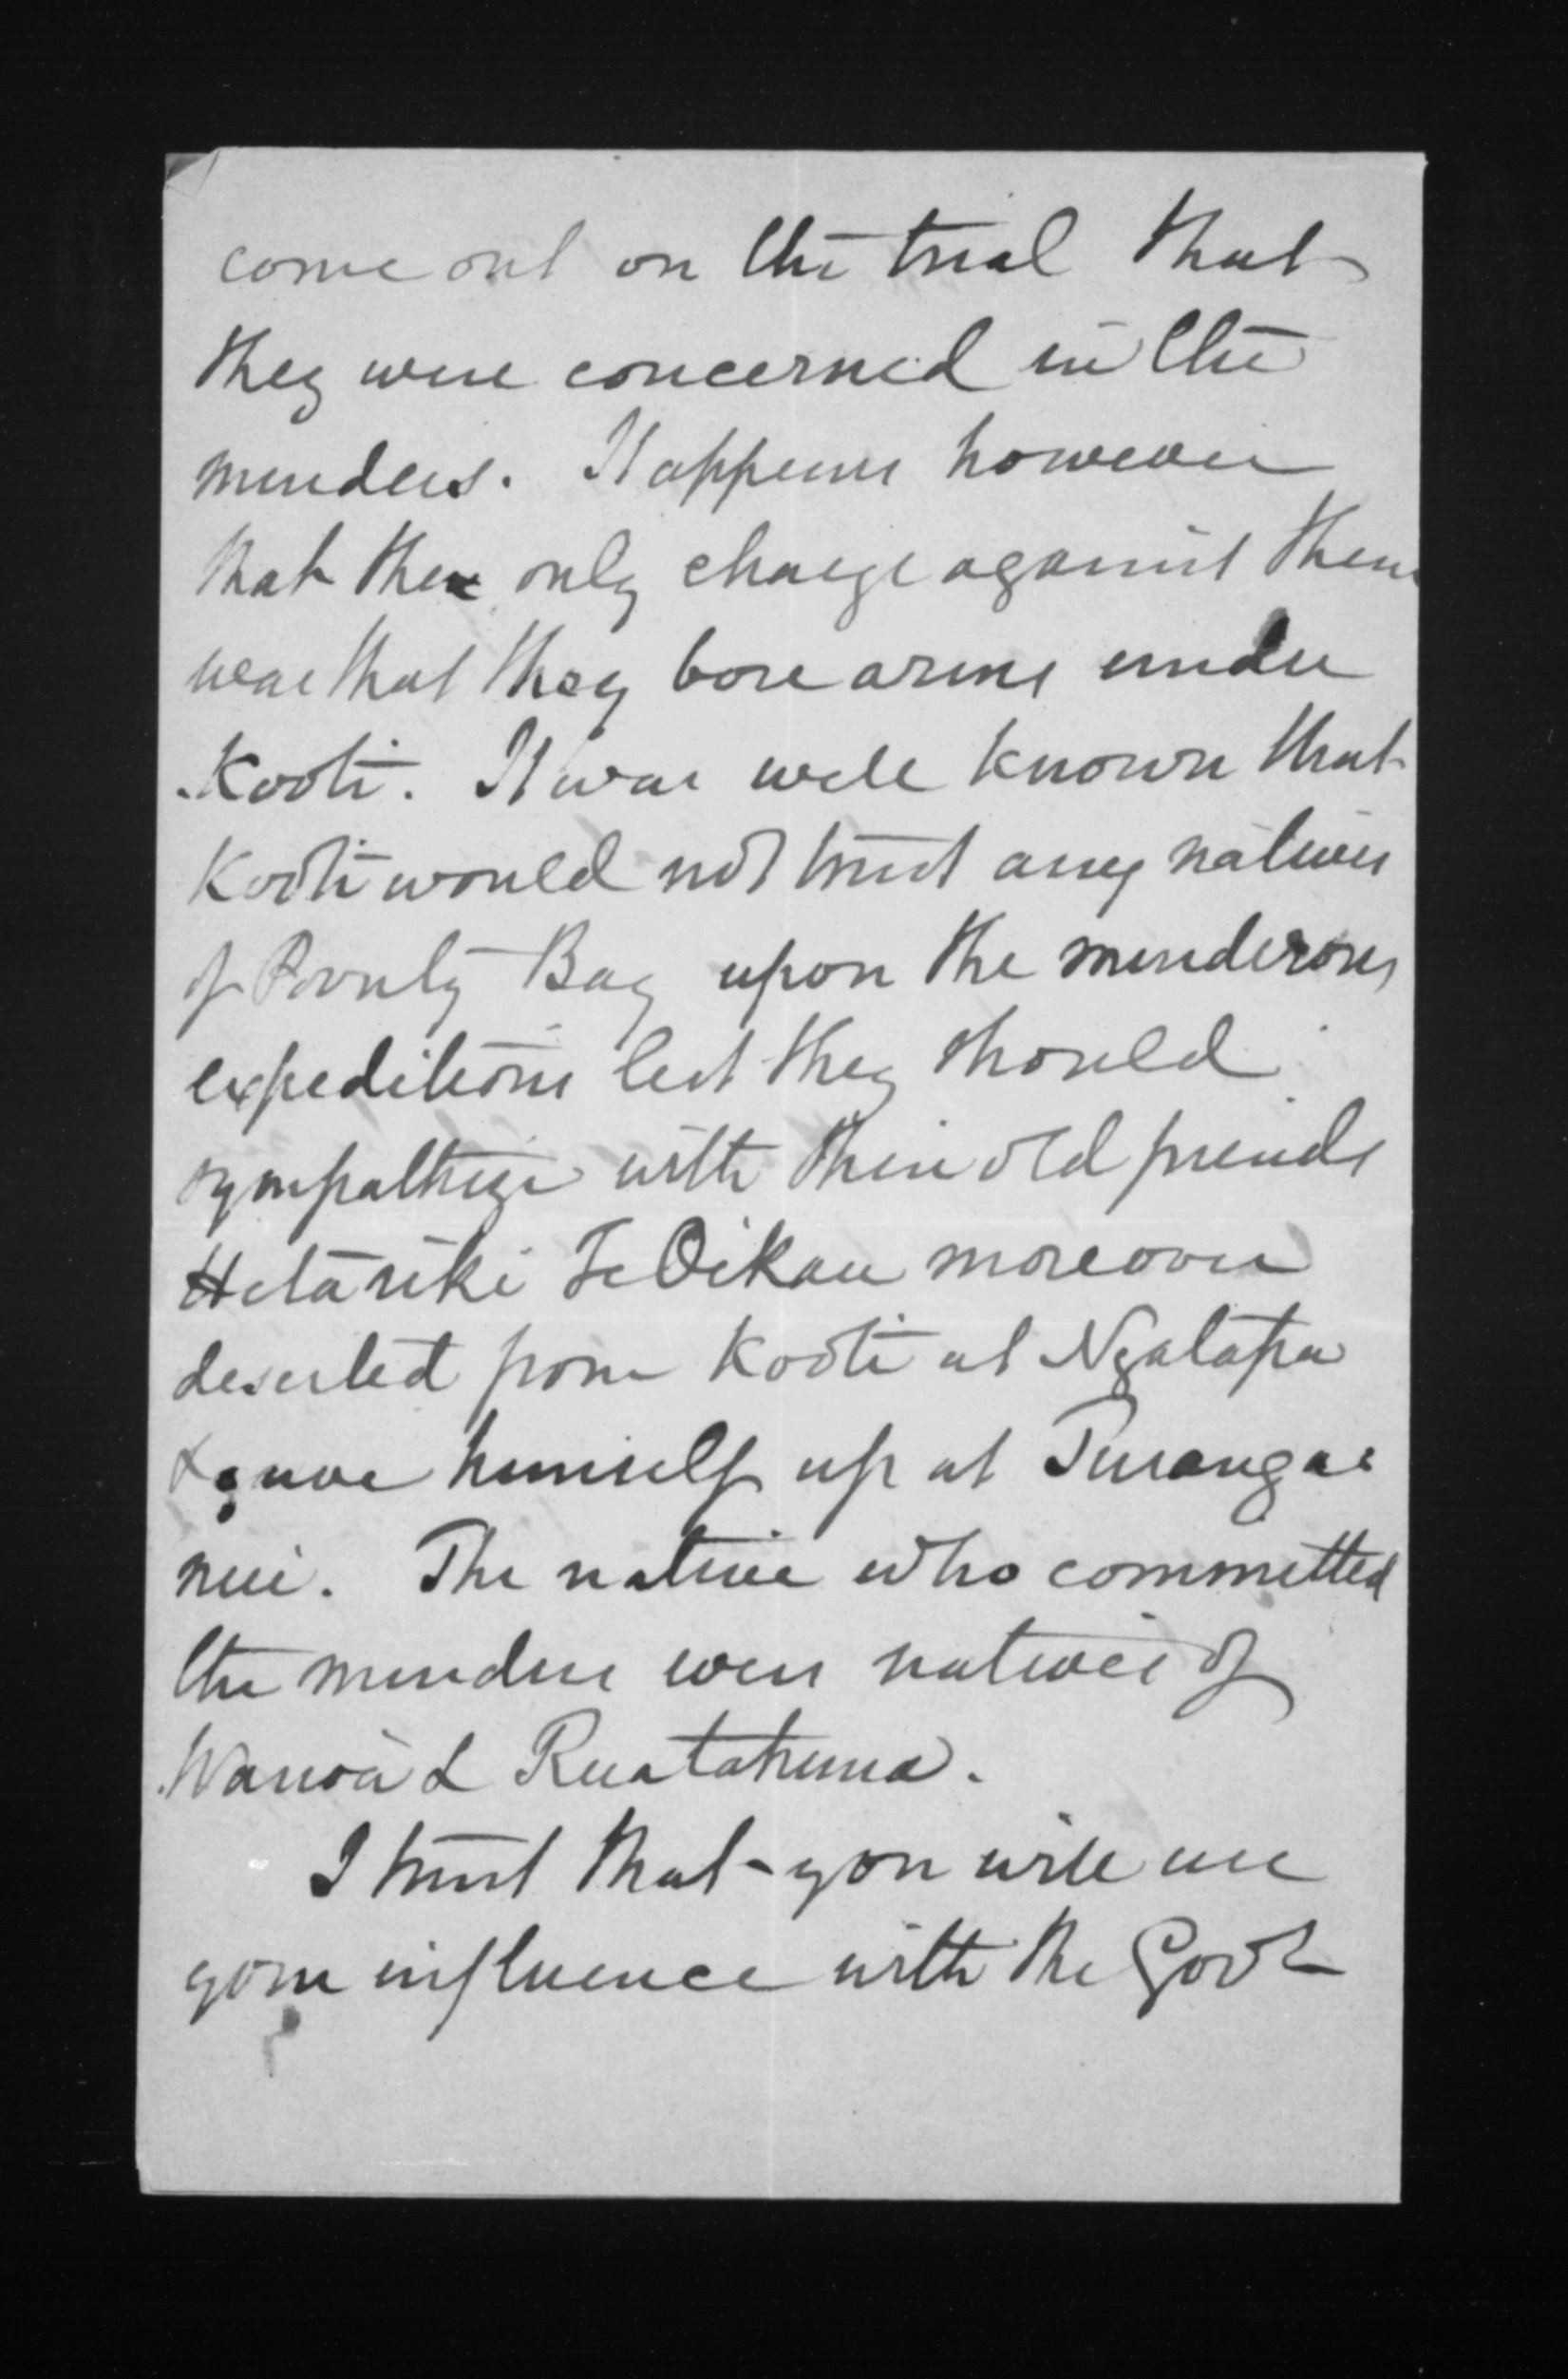 come out on the trial that
they were concerned in the
murders. It appears however
that the only charge against them
was that they bore arms under
Kooti. It was well known that
Kooti would not trust any natives
of Poverty Bay upon the murderous
expeditions lest they should
sympathize with their old friends
Hetariki Te Oikau moreover
deserted from Kooti at Ngatapa
& gave himself up at Turanga
nui. The natives who committed
the murders were natives of
Wairoa & Ruatahuna.
I trust that you will use
your influence with the Govt